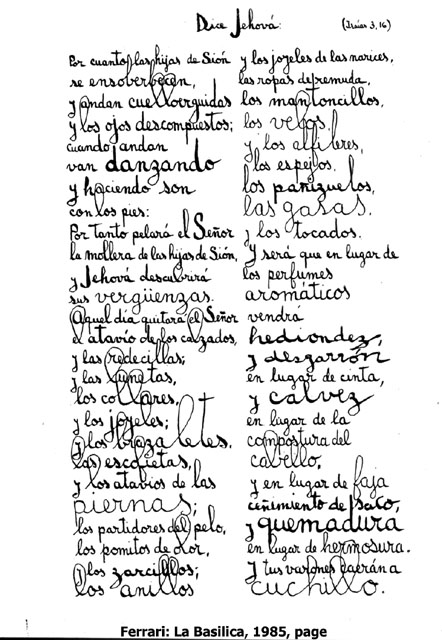 Dice Jehová: (Isaías 3,16)
Por cuanto las hijas de Sión
se ensoberbecen,
y andan cuelloerguidas
y los ojos descompuestos;
cuando andan
van danzando
y haciendo son
con los pies:
Por tanto pelará el Señor
la mollera de las hijas de Sión,
y Jehová descubrirá
sus vergüenzas.
Aquel día quitará el Señor
el atavío de los calzados,
y las redecillas;
y las lunetas,
los collares,
y los joyeles;
y los brazaletes.
las escofietas,
y los atavíos de las
piernas;
los partidores del pelo,
los pomitos de olor,
y los zarcillos;
los anillos
y los joyeles de las narices,
las ropas de remuda,
los mantoncillos,
los velos,
y los alfileres,
los espejos,
los pañizuelos,
las gasas.
y los tocados.
Y será que en lugar de
los perfumes
aromáticos
vendrá
hediondez,
y desgarrón
en lugar de cinta,
y calvez
en lugar de la
compostura del
cabello;
y en lugar de faja
ceñimiento de saco,
y quemadura
en lugar de hermosura.
Y tus varones caerán a
cuchillo.
Ferrari: La Basilica, 1985, page